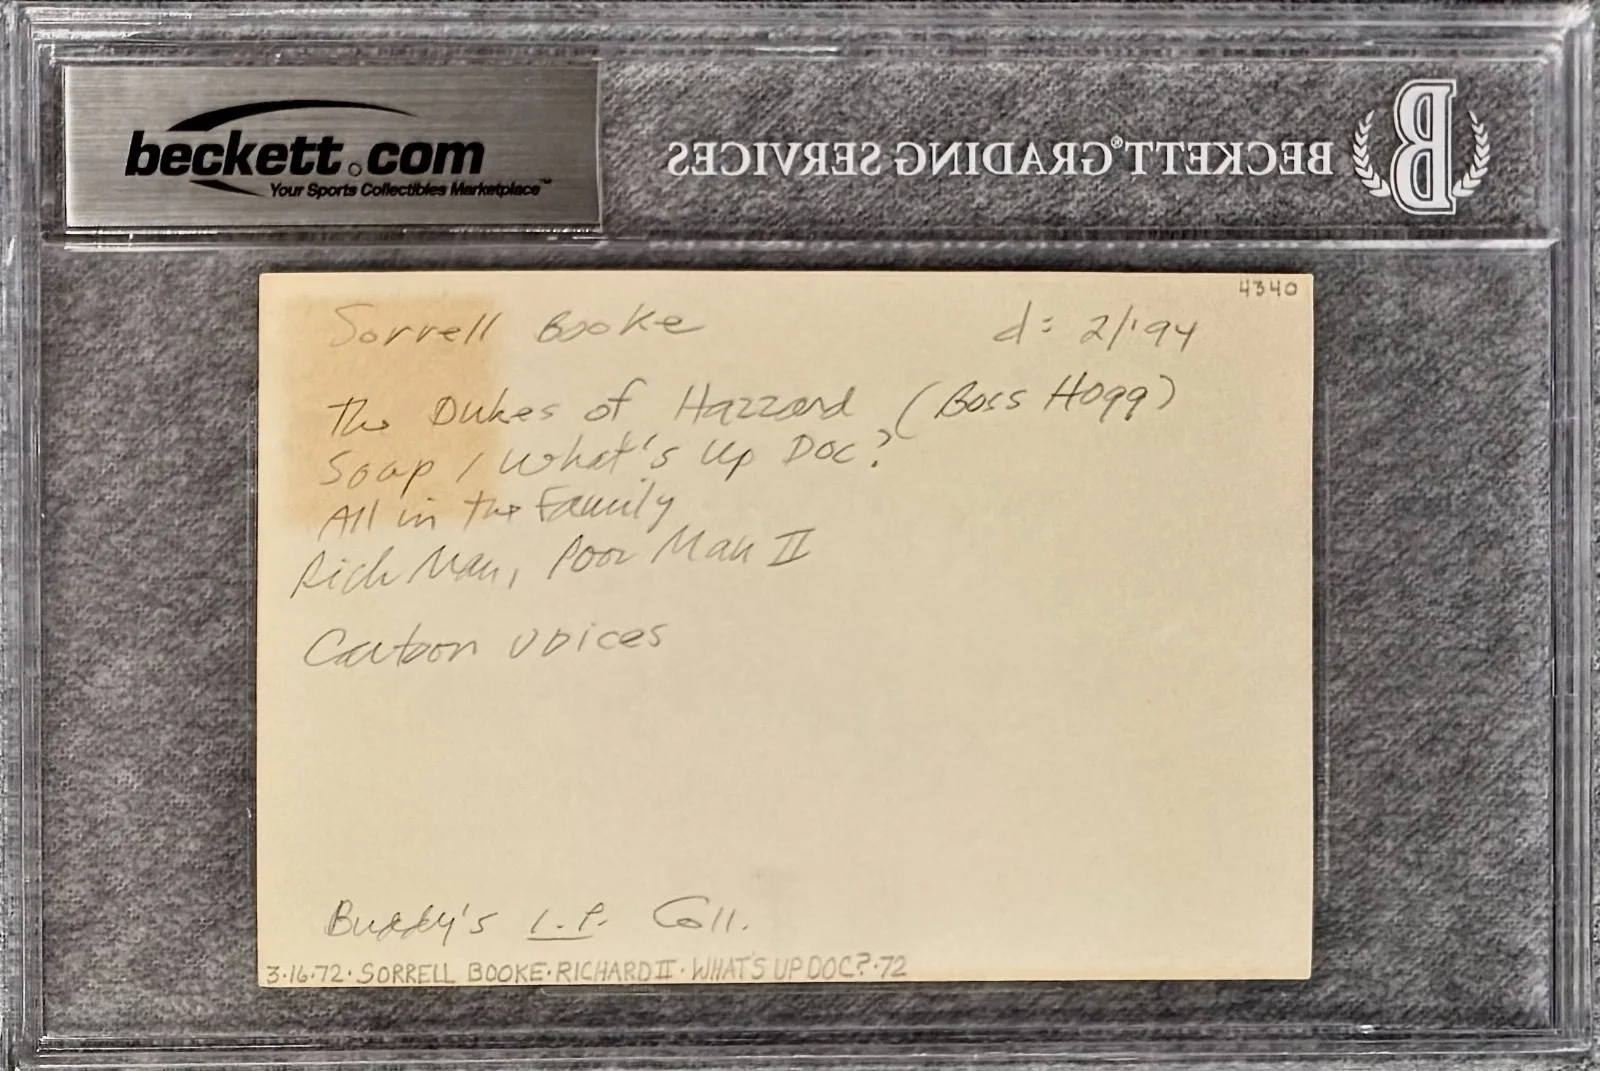 beckett.com
Your Sports Collectibles Marketplace™
BECKETT® GRADING SERVICES
B
4340
Sorrell Booke d: 2/'94
The Dukes of Hazzard (Boss Hogg)
Soap / What's Up Doc?
All in the Family
Rich Man, Poor Man II
Cartoon voices
Buddy's I.P. Coll.
3·16·72· SORRELL BOOKE·RICHARD II· WHAT'S UP DOC?·72